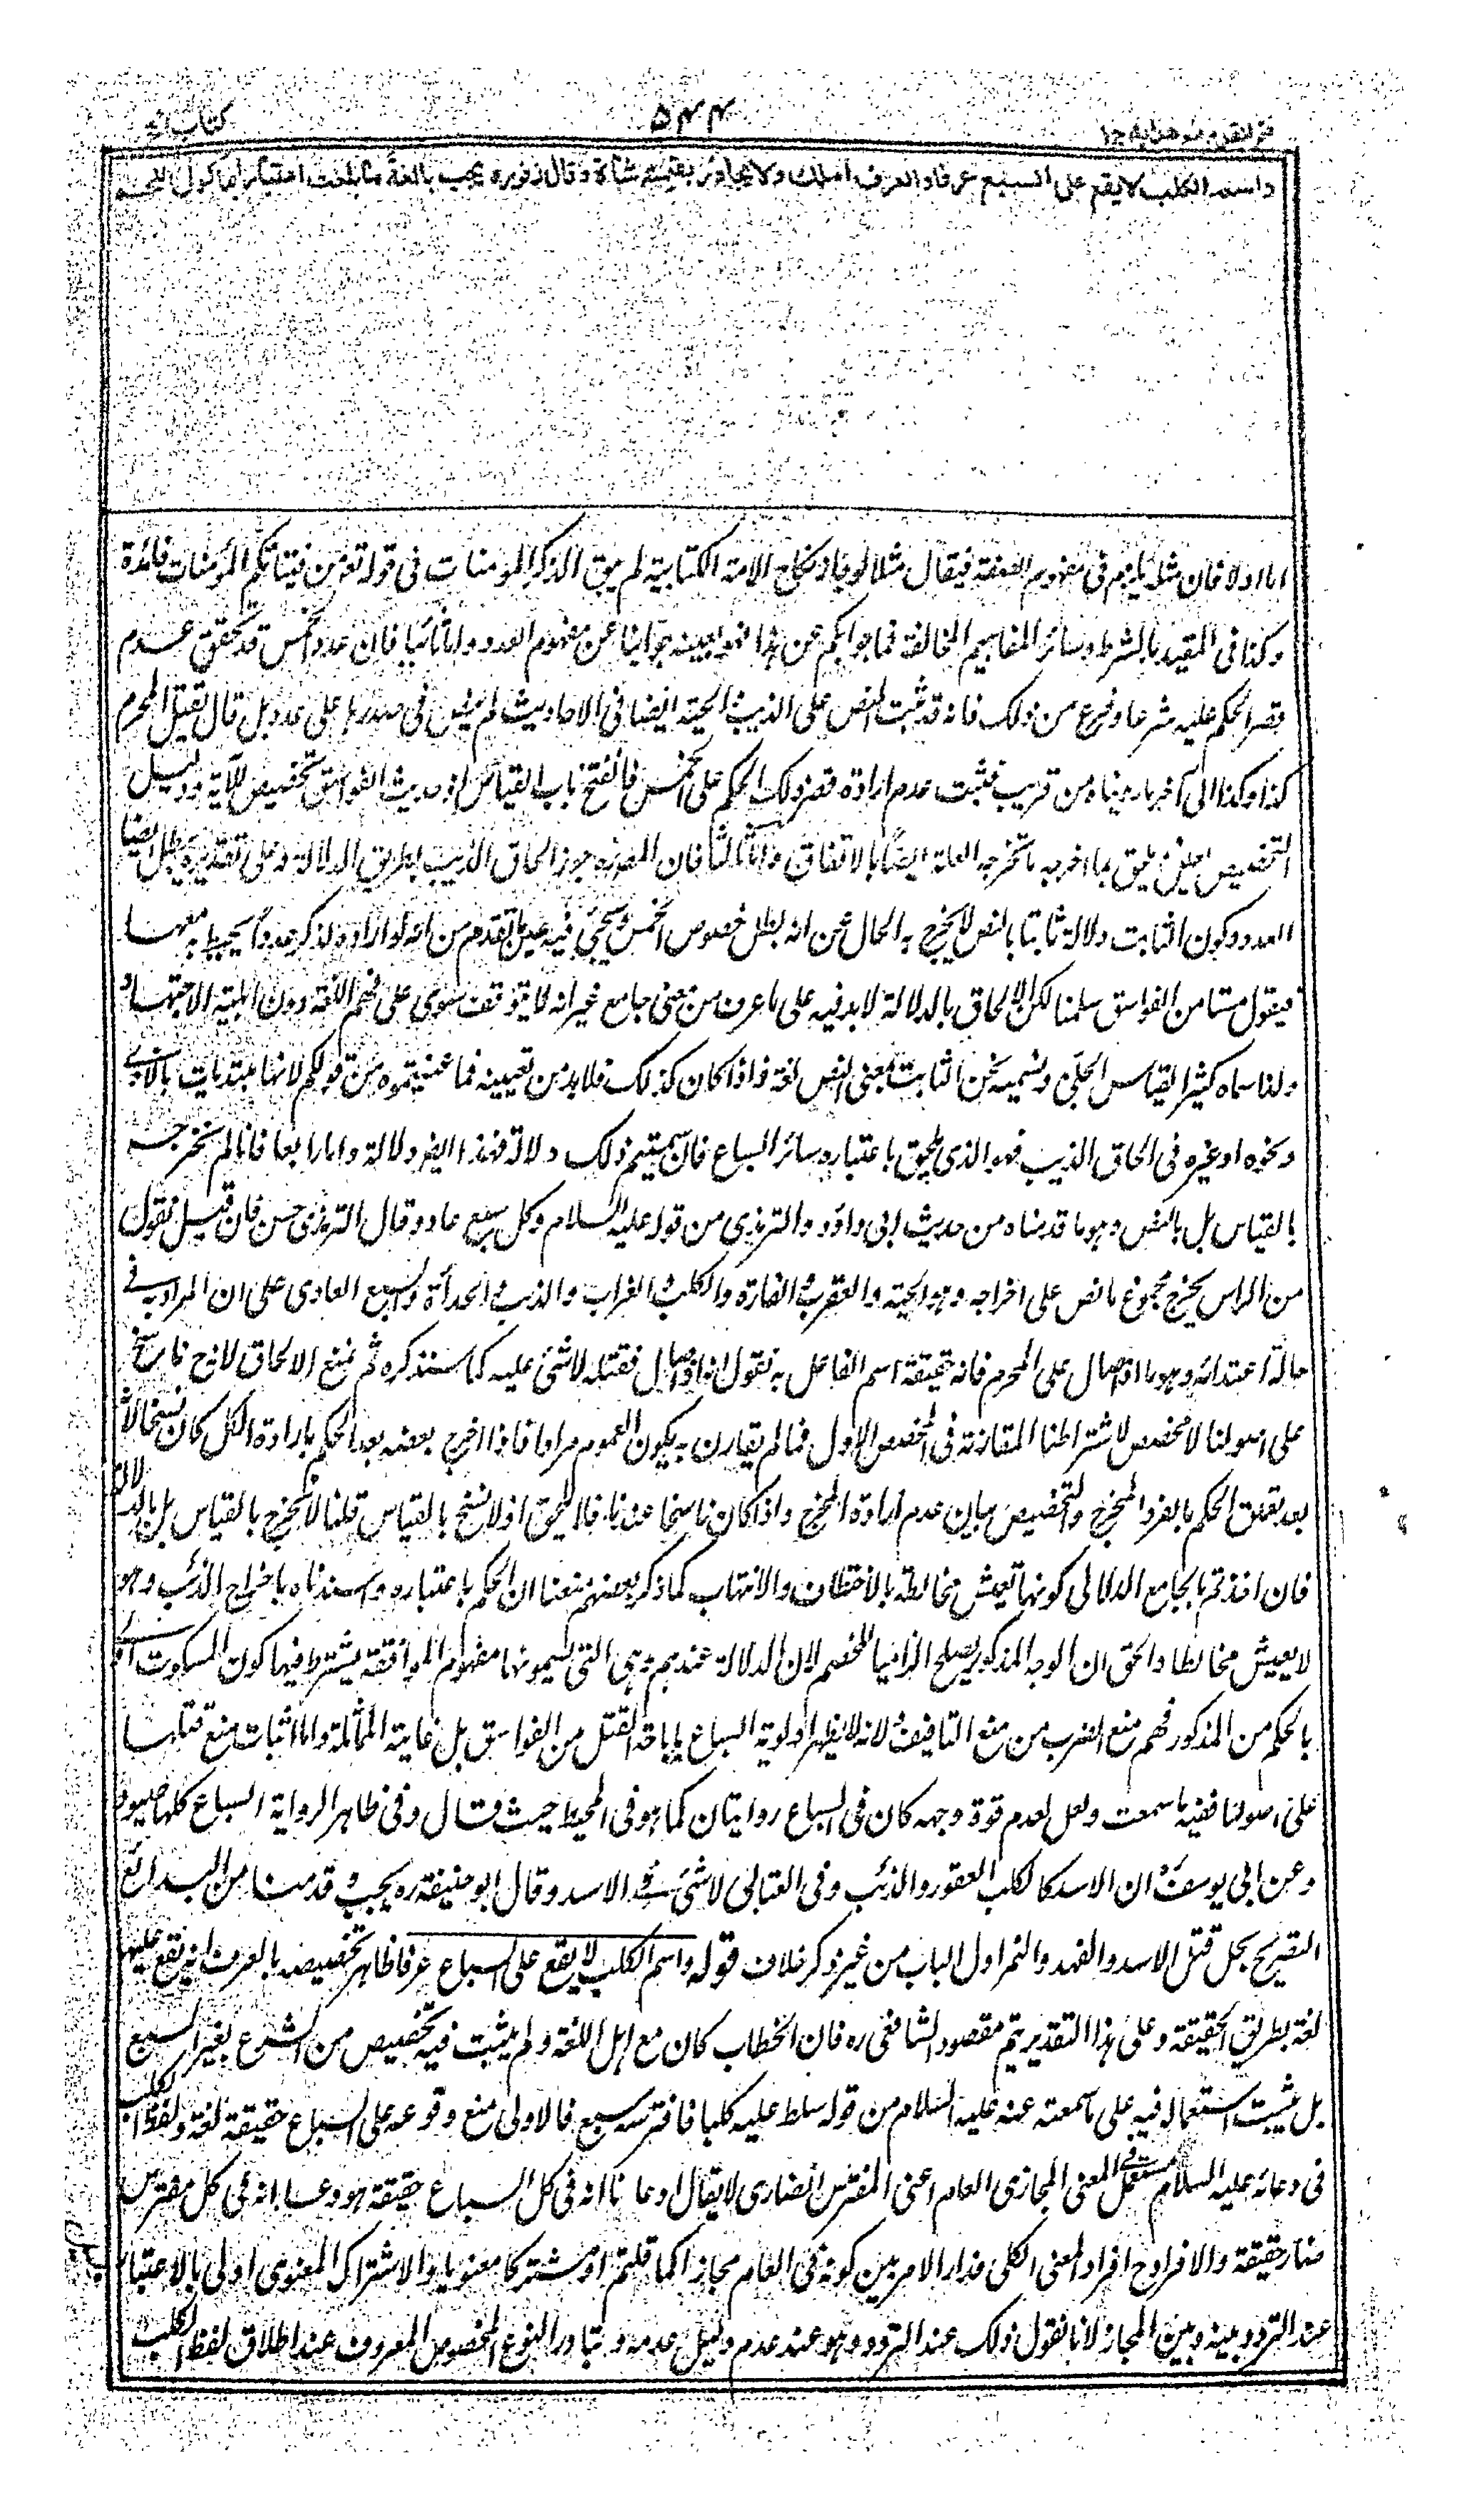 فتح القدير مع هدايه ج١ ٥٤٤ كتاب الحج
واسم الكلب لا يقع على السبع عرفا والعرف املك ولا يجاوز بقيمته شاة وقال زفر ره يجب بالغة ما بلغت اعتبارا بماكول اللحم
اما اولا فان مثله يلزم فى مفهوم الصفة فيقال مثلا لو جاز نكاح الامة الكتابية لم يبق لذكر المؤمنات فى قوله تعم من فتياتكم المؤمنات فائدة
وكذا فى المقيد بالشرط وسائر المفاهيم المخالفة فما جوابكم عن هذا فهو بعينه جوابنا عن مفهوم العدد واما ثانيا فان عدد الخمس قد تحقق عدم
قصر الحكم عليه شرعا وفرع من ذلك فانه قد ثبت النص على الذيب والحية ايضا فى الاحاديث لم ينص فى صدرها على عدد بل قال يقتل المحرم
كذا وكذا الى آخر ما رويناه من قريب فثبت عدم ارادة قصر ذلك الحكم على الخمس فانفتح باب القياس اذ حديث الفواسق تخصيص للآية ودليل
التخصيص يلحق بما اخرجه ما تخرجه العلة ايضاً بالاتفاق واما ثالثا فان المص ره جوز الحاق الذيب بطريق الدلالة وعلى تقديره يبطل ايضا
العدد وكون الثابت دلالة ثابتا بالنص لا يخرج به الحال عن انه بطل خصوص الخمس ويجئ فيه عين ما تقدم من انه لو اراده لذكر عددا يحيط به معها
فيقول ستا من الفواسق سلمنا لكن الالحاق بالدلالة لا بد فيه على ما عرف من معنى جامع غير انه لا يتوقف سوى على فهم اللغة دون اهلية الاجتهاد
ولذا سماه كثير القياس الجلى ونسميه نحن الثابت بمعنى النص لغة واذا كان كذلك فلا بد من تعيينه فما عنيتموه من قولكم لانها مبتديات بالاذى
ونحوه او غيره فى الحاق الذيب فهو الذى يلحق باعتباره سائر السباع فان سميتم ذلك دلالة فهذا ايضا دلالة واما رابعا فانا لم نخرجه
بالقياس بل بالنص وهو ما قدمناه من حديث ابى داؤد والترمذى من قوله عليه السلام وكل سبع عاد وقال الترمذى حسن فان قيل نقول
من الراس يخرج مجموع ما نص على اخراجه وهو الحية والعقرب والفارة والكلب والغراب والذيب والحدأة والسبع العادى على ان المراد به فى
حالة اعتدائه وهو ما اذا صال على المحرم فانه حقيقة اسم الفاعل به نقول انه اذا صال فقتله لا شئ عليه كما سنذكره ثم نمنع الالحاق لانه ح ناسخ
على اصولنا لا مخصص لاشتراطنا المقارنة فى المخصص الاول فما لم يقارن به يكون العموم مرادا فاذا اخرج بعضه بعد الحكم بارادة الكل كان نسخا لا
بعد تعلق الحكم بالفرد المخرج والتخصيص بيان عدم ارادة المخرج واذا كان ناسخا عندنا فلا يلحق اذ لا نسخ بالقياس قلنا لا نخرج بالقياس بل بالدلالة
فان اخذتم بالجامع الدلالى كونها تعيش مخالطة بالاختطاف والانتهاب كما ذكر بعضهم منعنا ان الحكم باعتباره واسندناه باخراج الذئب وهو
لا يعيش مخالطا والحق ان الوجه المذكور يصلح الزاميا للخصم لان الدلالة عندهم وهى التى يسمونها مفهوم الموافقة يشترط فيها كون المسكوت اولى
بالحكم من المذكور فهم منع الضرب من منع التافيف ولانه لا يظهر اولوية السباع باباحة القتل من الفواسق بل غاية المماثلة واما اثبات منع قتلها
على اصولنا ففيه ما سمعت ولعل لعدم قوة وجهه كان فى السباع روايتان كما هو فى المحيط حيث قال وفى ظاهر الرواية السباع كلها صيود
وعن ابى يوسف ره ان الاسد كالكلب العقور والذئب وفى العتابى لا شئ فى الاسد وقال ابو حنيفة ره يجب وقدمنا من البدائع
التصريح بحل قتل الاسد والفهد والنمر اول الباب من غير ذكر خلاف قوله واسم الكلب لا يقع على السباع عرفا ظاهر تخصيصه بالعرف انه يقع عليها
لغة بطريق الحقيقة وعلى هذا التقدير يتم مقصود الشافعى ره فان الخطاب كان مع اهل اللغة ولم يثبت فيه تخصيص من الشرع بغير السبع
بل يثبت استعماله فيه على ما سمعته عنه عليه السلام من قوله سلط عليه كلبا فافترسه سبع فالاولى منع وقوعه على السباع حقيقة لغة ولفظ الكلب
فى دعائه عليه السلام مستعمل فى المعنى المجازى العام اعنى المفترس الضارى لا يقال ادعاؤنا انه فى كل السباع حقيقة هو دعوى انه فى كل مفترس
ضار حقيقة والافراد ح افراد المعنى الكلى فدار الامر بين كونه فى العام مجازا كما قلتم او مشتركا معنويا والاشتراك المعنوى اولى بالاعتبار
عند التردد بينه وبين المجاز لانا نقول ذلك عند التردد وهو عند عدم دليل عدمه وتبادر النوع المخصوص المعروف عند اطلاق لفظ الكلب